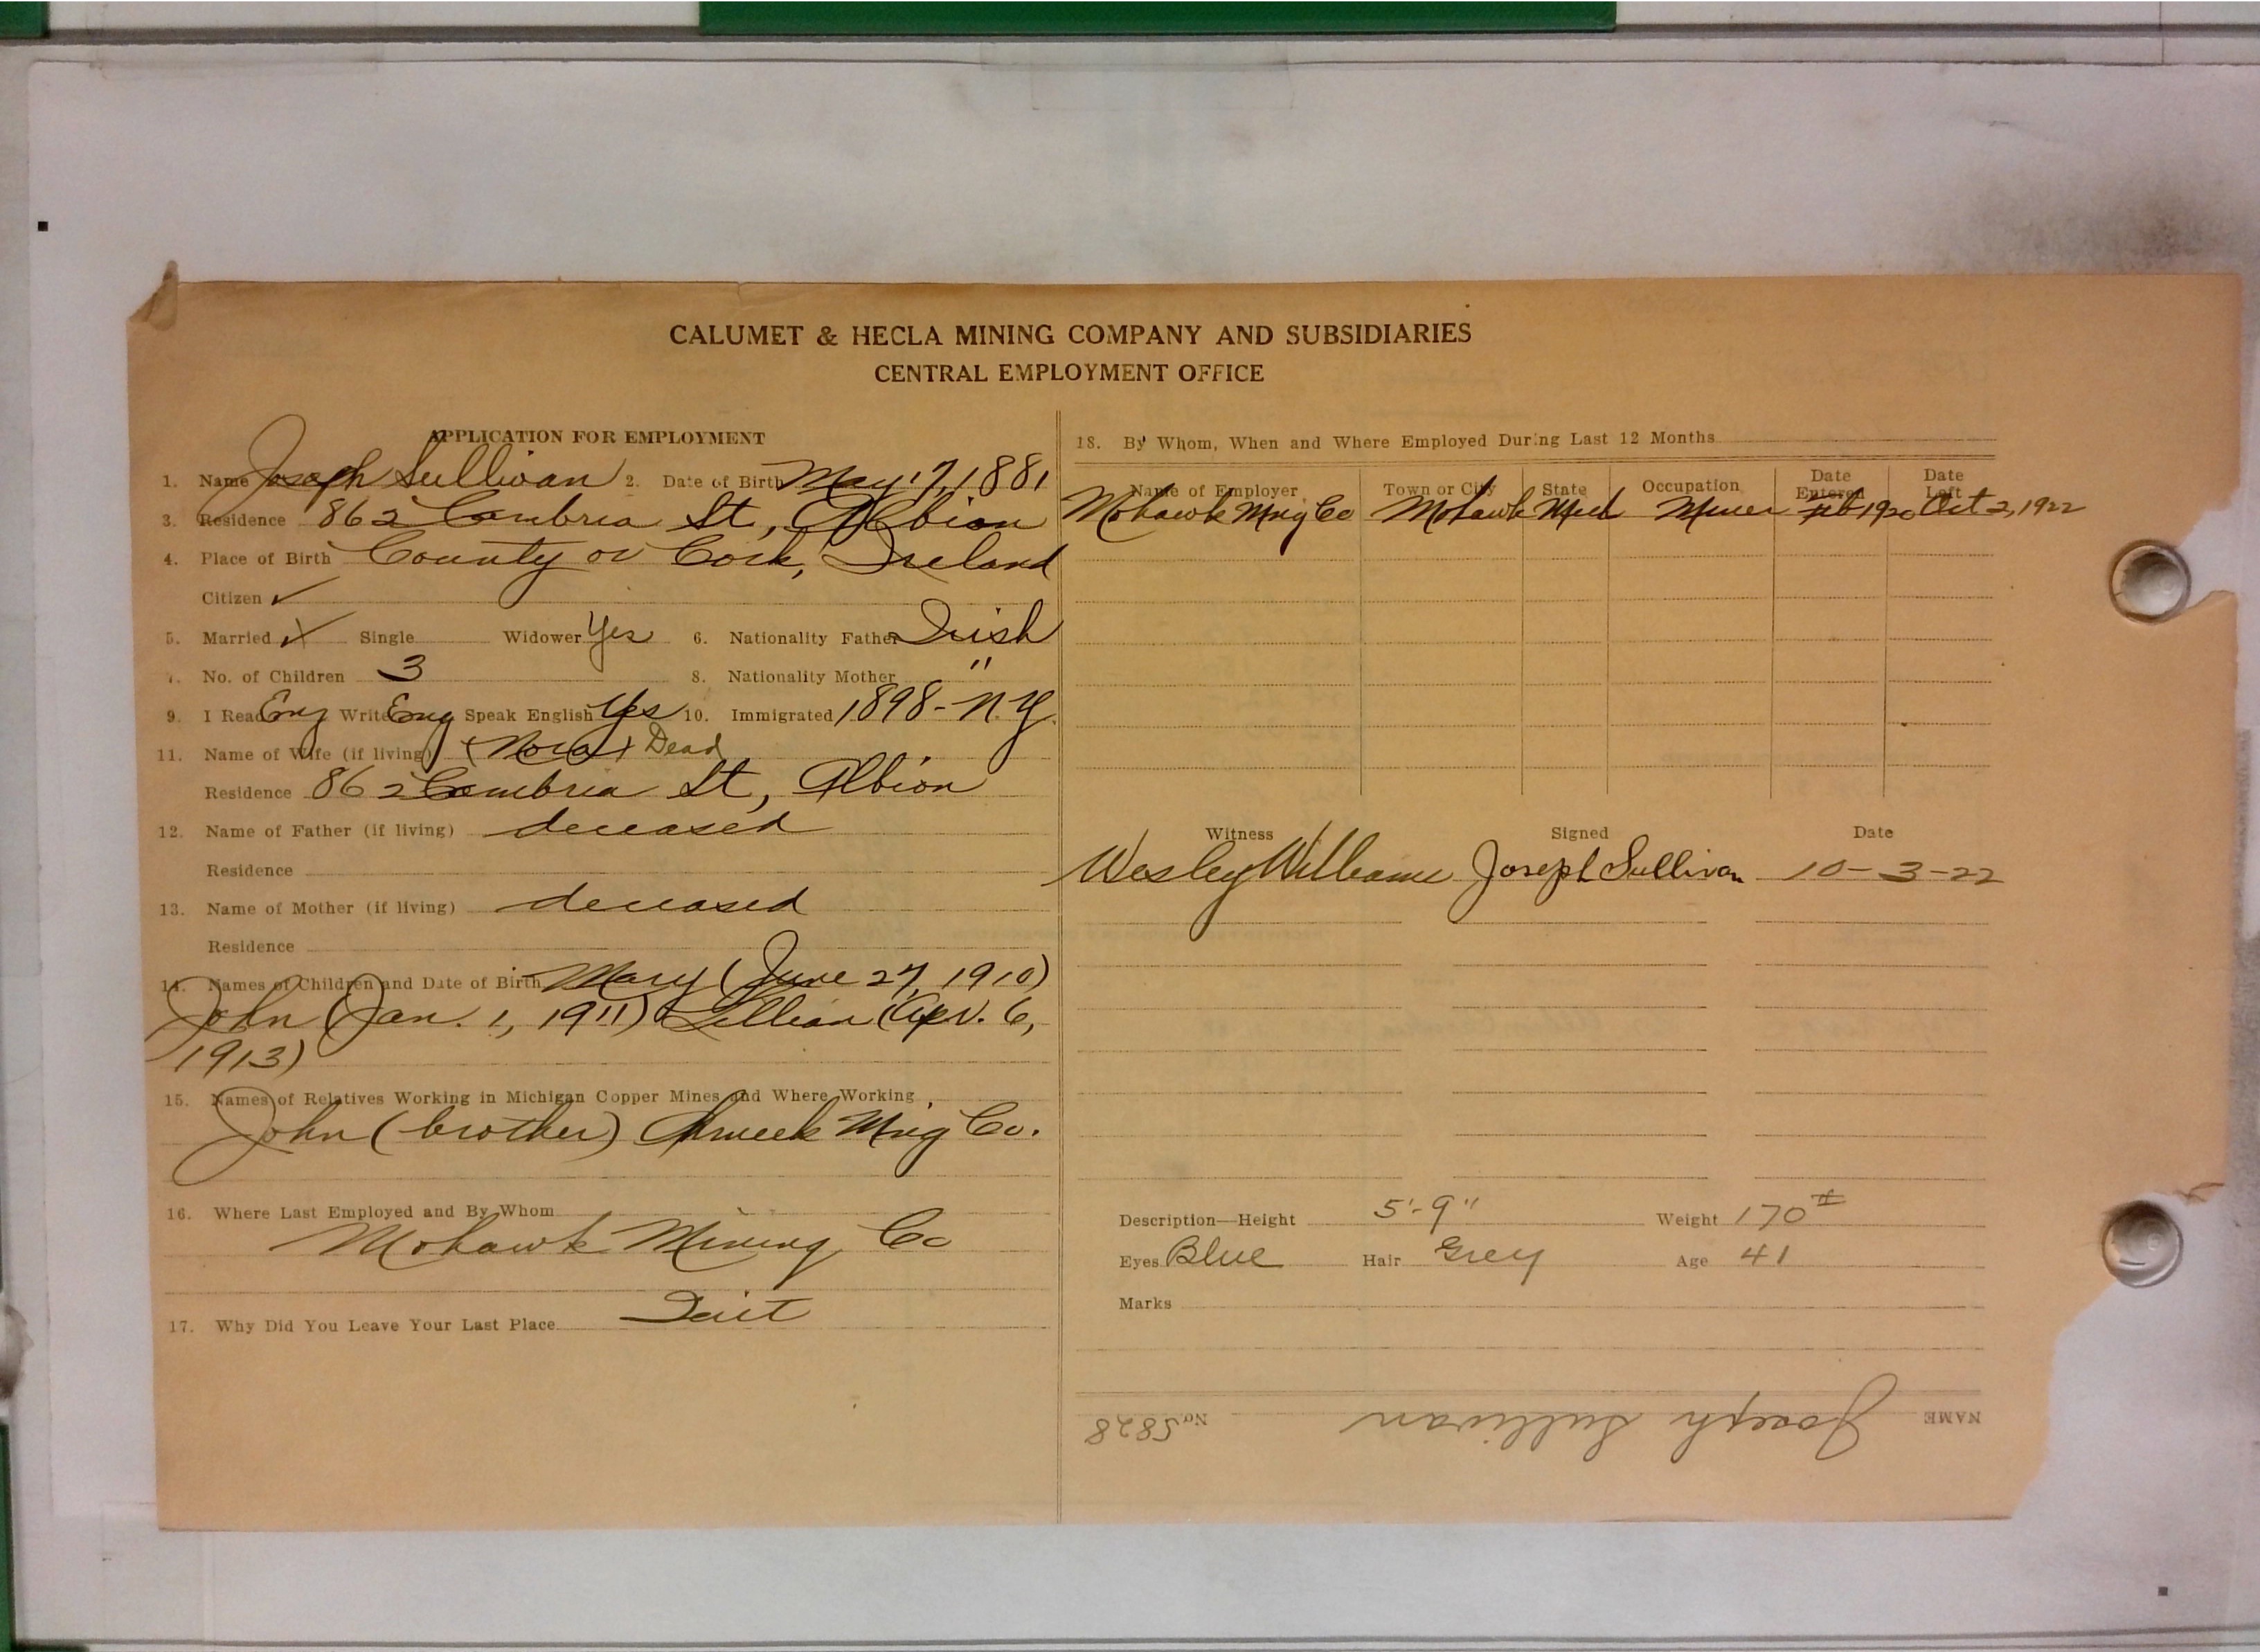 CALUMET & HECLA MINING COMPANY AND SUBSIDIARIES
CENTRAL EMPLOYMENT OFFICE
APPLICATION FOR EMPLOYMENT
1. Name Joseph Sullivan 2. Date of Birth May 17, 1881
3. Residence 862 Cambria St, Albion
4. Place of Birth County ov Cork, Ireland
Citizen ✓
5. Married ✓ Single Widower Yes 6. Nationality Father Irish
7. No. of Children 3 8. Nationality Mother "
9. I Read Eng Write Eng Speak English Yes 10. Immigrated 1898 - N.Y.
11. Name of Wife (if living) (Nora) Dead
Residence 862 Cambria St, Albion
12. Name of Father (if living) deceased
Residence
13. Name of Mother (if living) deceased
Residence
14. Names of Children and Date of Birth Mary (June 27, 1910)
John (Jan. 1, 1911) Lillian (Apr. 6,
1913)
15. Names of Relatives Working in Michigan Copper Mines and Where Working
John (brother) Ahmeek Mng Co.
16. Where Last Employed and By Whom
Mohawk Mining Co
17. Why Did You Leave Your Last Place Quit
18. By Whom, When and Where Employed During Last 12 Months
Name of Employer Town or City State Occupation Date Entered Date Left
Mohawk Mng Co Mohawk Mich Miner Feb 1920 Oct 2, 1922
Witness Signed Date
Wesley Williams Joseph Sullivan 10-3-22
Description—Height 5'-9" Weight 170#
Eyes Blue Hair Grey Age 41
Marks
NAME Joseph Sullivan No. 5828